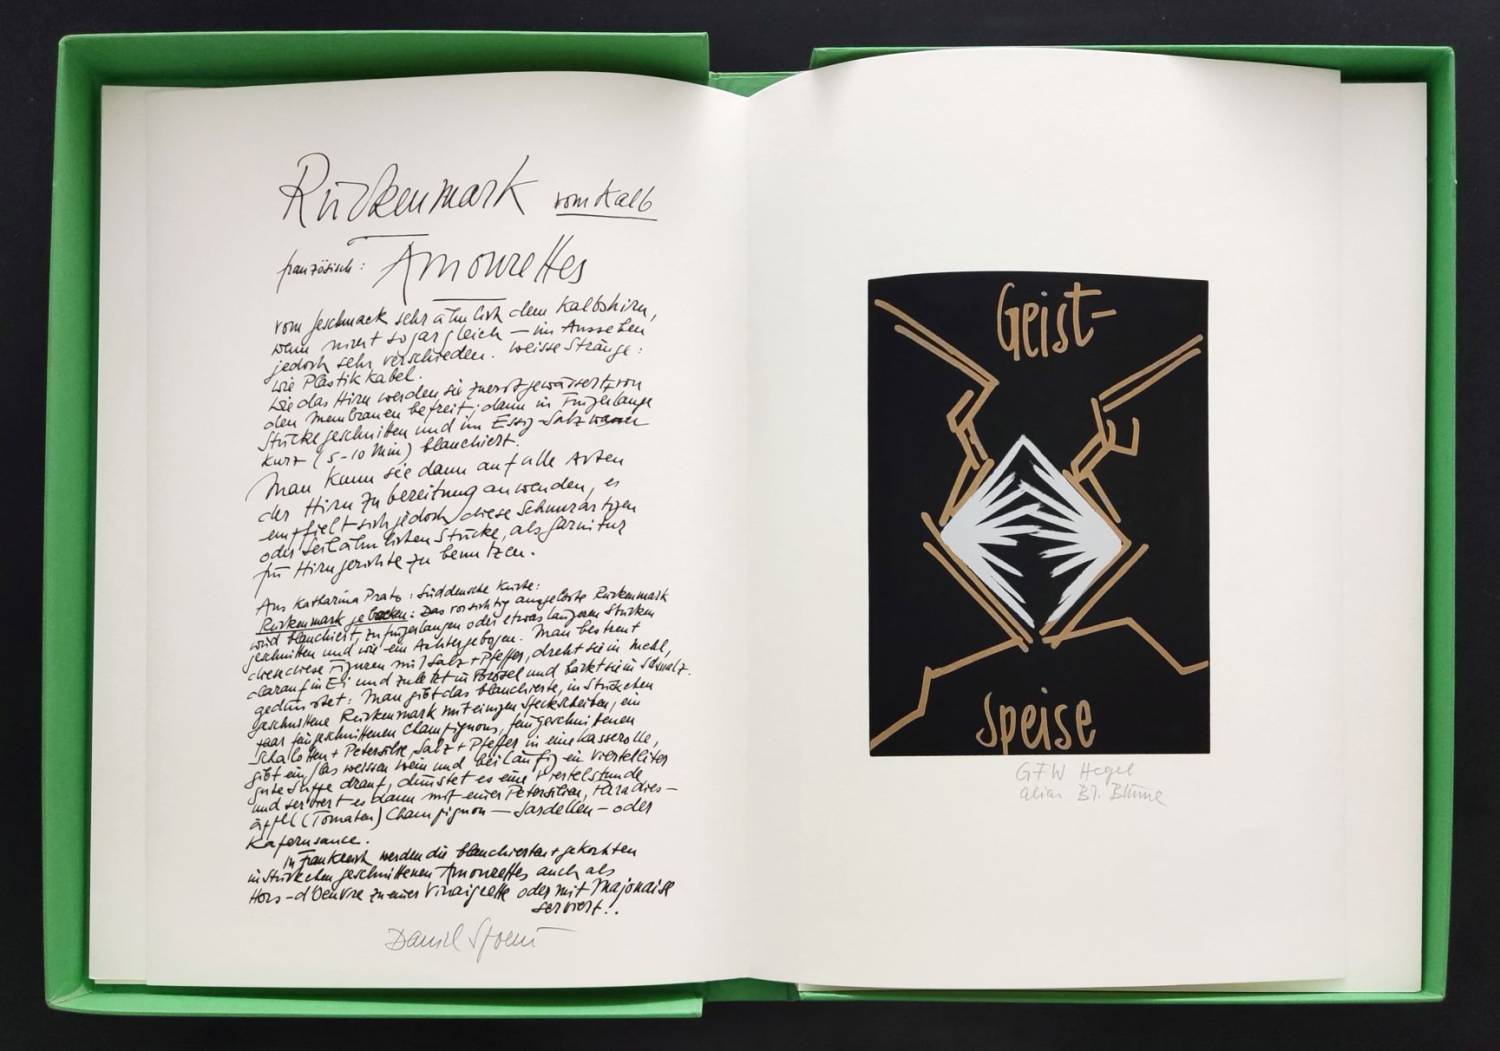 Rückenmark vom Kalb
französisch: Amourettes
vom Geschmack sehr ähnlich dem Kalbshirn,
wenn nicht sogar gleich — im Aussehen
jedoch sehr verschieden. weisse Stränge:
wie Plastikkabel.
Wie das Hirn werden sie zuerst gewässert, von
den Membranen befreit, dann in Fingerlange
Stücke geschnitten und im Essig-Salzwasser
kurz (5-10 Min) blanchiert.
Man kann sie dann auf alle Arten
der Hirnzubereitung anwenden, es
empfielt sich jedoch diese Schnurartigen
oder Seilähnlichen Stücke, als Garnitur
für Hirngerichte zu benutzen.
Aus Katharina Prato: Süddeutsche Küche:
Rückenmark gebacken: Das vorsichtig ausgelöste Rückenmark
wird blanchiert, zu fingerlangen oder etwas längeren Stücken
geschnitten und wie ein Achter gebogen. Man bestreut
diese Figuren mit Salz + Pfeffer, dreht sie in Mehl,
darauf in Ei und zuletzt in Brösel und bäckt sie in Schmalz.
gedünstet: Man gibt das blanchierte, in Stückchen
geschnittene Rückenmark mit einigen Speckscheiben, ein
paar feingeschnittenen Champignons, feingeschnittenen
Schalotten + Petersilie, Salz + Pfeffer in eine Kasserolle,
gibt ein Glas weissen Wein und beiläufig ein Viertelliter
gute Suppe drauf, dünstet es eine Viertelstunde
und serviert es dann mit einer Petersilien, Paradies-
äpfel (Tomaten) Champignon — Sardellen — oder
Kapernsauce.
in Frankreich werden die blanchierten + gekochten
in Stückchen geschnittenen Amourettes auch als
Hors-d'Oeuvre zu einer Vinaigrette oder mit Majonaise
serviert..
Daniel Spoerri
Geist-
Speise
GFW Hegel
alias B.J. Blume